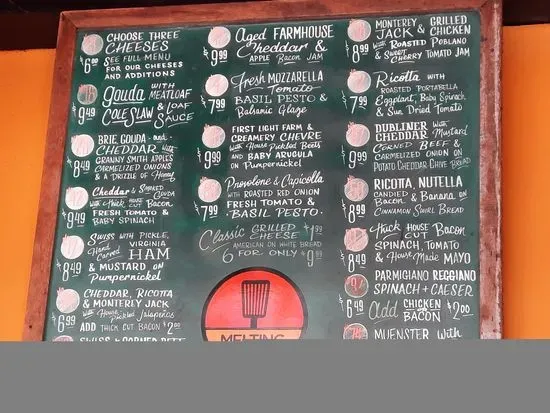 CHOOSE THREE
CHEESES
$6.00
SEE FULL MENU
FOR OUR CHEESES
AND ADDITIONS
Gouda WITH
MEATLOAF
$9.49
COLE SLAW & LOAF
SAUCE
BRIE, GOUDA - and -
CHEDDAR WITH
GRANNY SMITH APPLES
$8.49
CARMELIZED ONIONS
& A DRIZZLE OF Honey
Cheddar & SMOKED GOUDA
WITH THICK HOUSE CUT Bacon
$9.49
FRESH TOMATO &
BABY SPINACH
SWISS WITH PICKLE,
Hand Carved VIRGINIA
HAM
$8.49
& MUSTARD ON
PUMPERNICKEL
CHEDDAR, RICOTTA
& MONTEREY JACK
$6.99
WITH House Pickled Jalapeños
ADD THICK CUT BACON $2.00
Aged FARMHOUSE
$9.99
Cheddar &
APPLE Bacon JAM
Fresh MOZZARELLA
Tomato
$7.99
BASIL PESTO &
Balsamic Glaze
FIRST LIGHT FARM &
CREAMERY CHEVRE
$9.99
WITH House Pickled Beets
AND BABY ARUGULA
ON PUMPERNICKEL
Provolone & Capicolla
WITH ROASTED RED ONION
$7.99
FRESH TOMATO &
BASIL PESTO.
Classic GRILLED CHEESE
AMERICAN ON WHITE BREAD
6 FOR ONLY $9.99
MELTING
MONTEREY
JACK & GRILLED
CHICKEN
$8.99
WITH ROASTED POBLANO
& SWEET
CHERRY TOMATO JAM
Ricotta WITH
ROASTED PORTABELLA
$7.99
Eggplant, Baby Spinach
& Sun Dried Tomato
DUBLINER WITH Mustard
CHEDDAR
CORNED BEEF &
$9.99
CARMELIZED ONION ON
POTATO CHEDDAR CHIVE BREAD
RICOTTA, NUTELLA
CANDIED & Banana ON
Bacon
$8.99
CINNAMON SWIRL BREAD
Thick HOUSE CUT BACON
SPINACH, TOMATO
$8.49
& House Made MAYO
PARMIGIANO REGGIANO
SPINACH + CAESER
$6.49
add CHICKEN
BACON $2.00
MUENSTER WITH